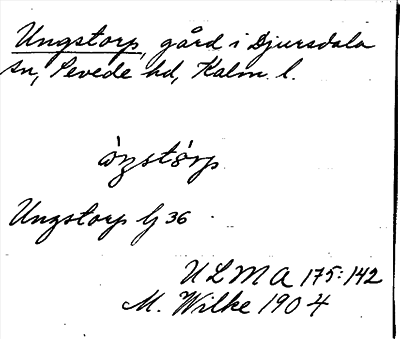 Ungstorp, gård i Djursdala
sn, Sevede hd, Kalm. l.
Ungstorp Gj 36
ULMA 175:142
M. Wilke 1904